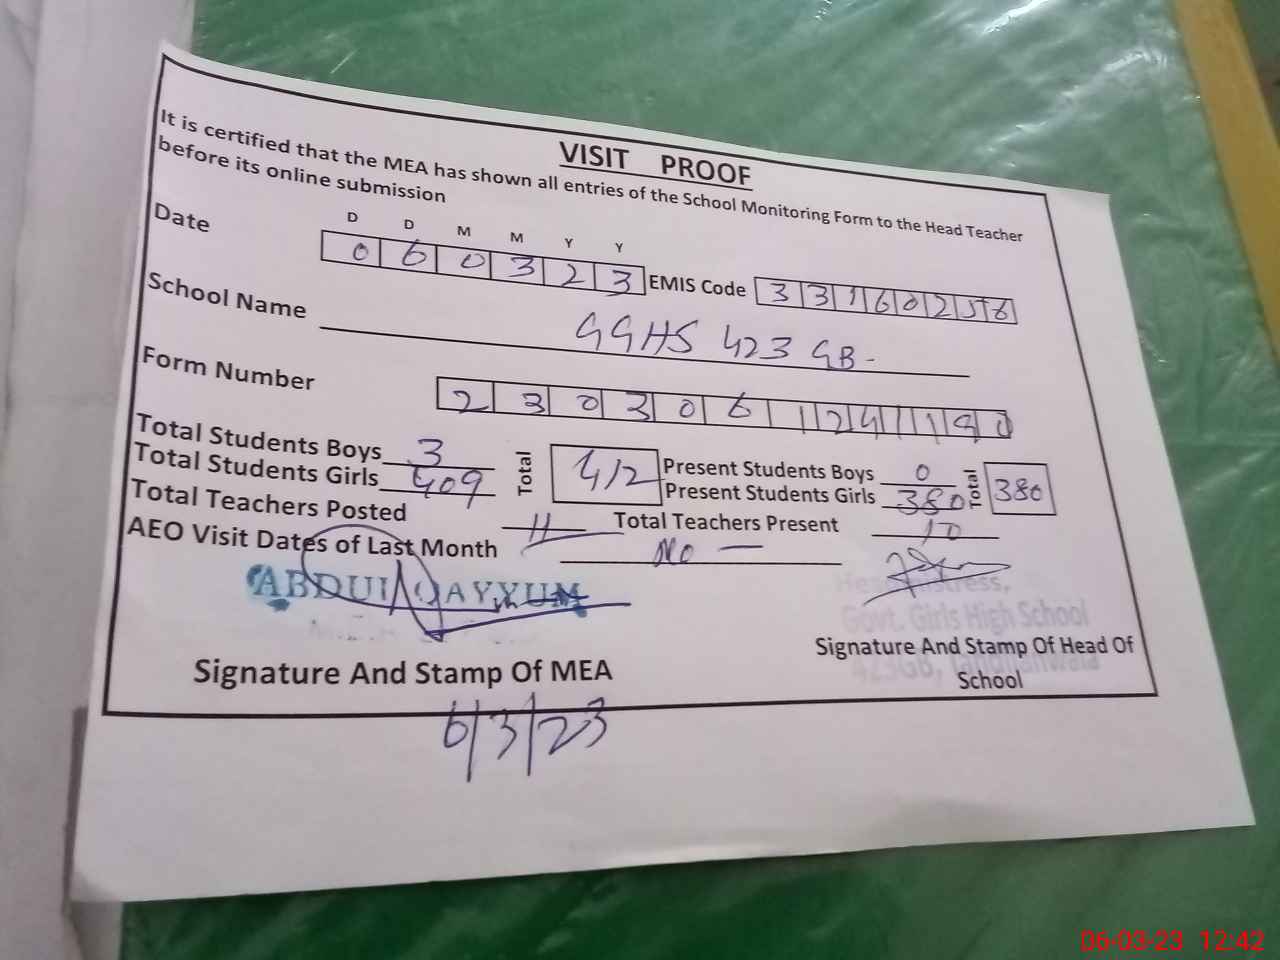 VISIT PROOF
It is certified that the MEA has shown all entries of the School Monitoring Form to the Head Teacher
before its online submission
D D M M Y Y
Date 0 6 0 3 2 3 EMIS Code 3 3 1 6 0 2 5 6
School Name GGHS 423 GB-
Form Number 2 3 0 3 0 6 1 2 4 1 1
Total Students Boys 3 Total 412 Present Students Boys 0 Total 380
Total Students Girls 409 Present Students Girls 380
Total Teachers Posted 11 Total Teachers Present 10
AEO Visit Dates of Last Month No —
ABDUL QAYYUM
Headmistress,
Govt. Girls High School
423GB, Tandlianwala
Signature And Stamp Of MEA
Signature And Stamp Of Head Of
School
6/3/23
06-03-23 12:42